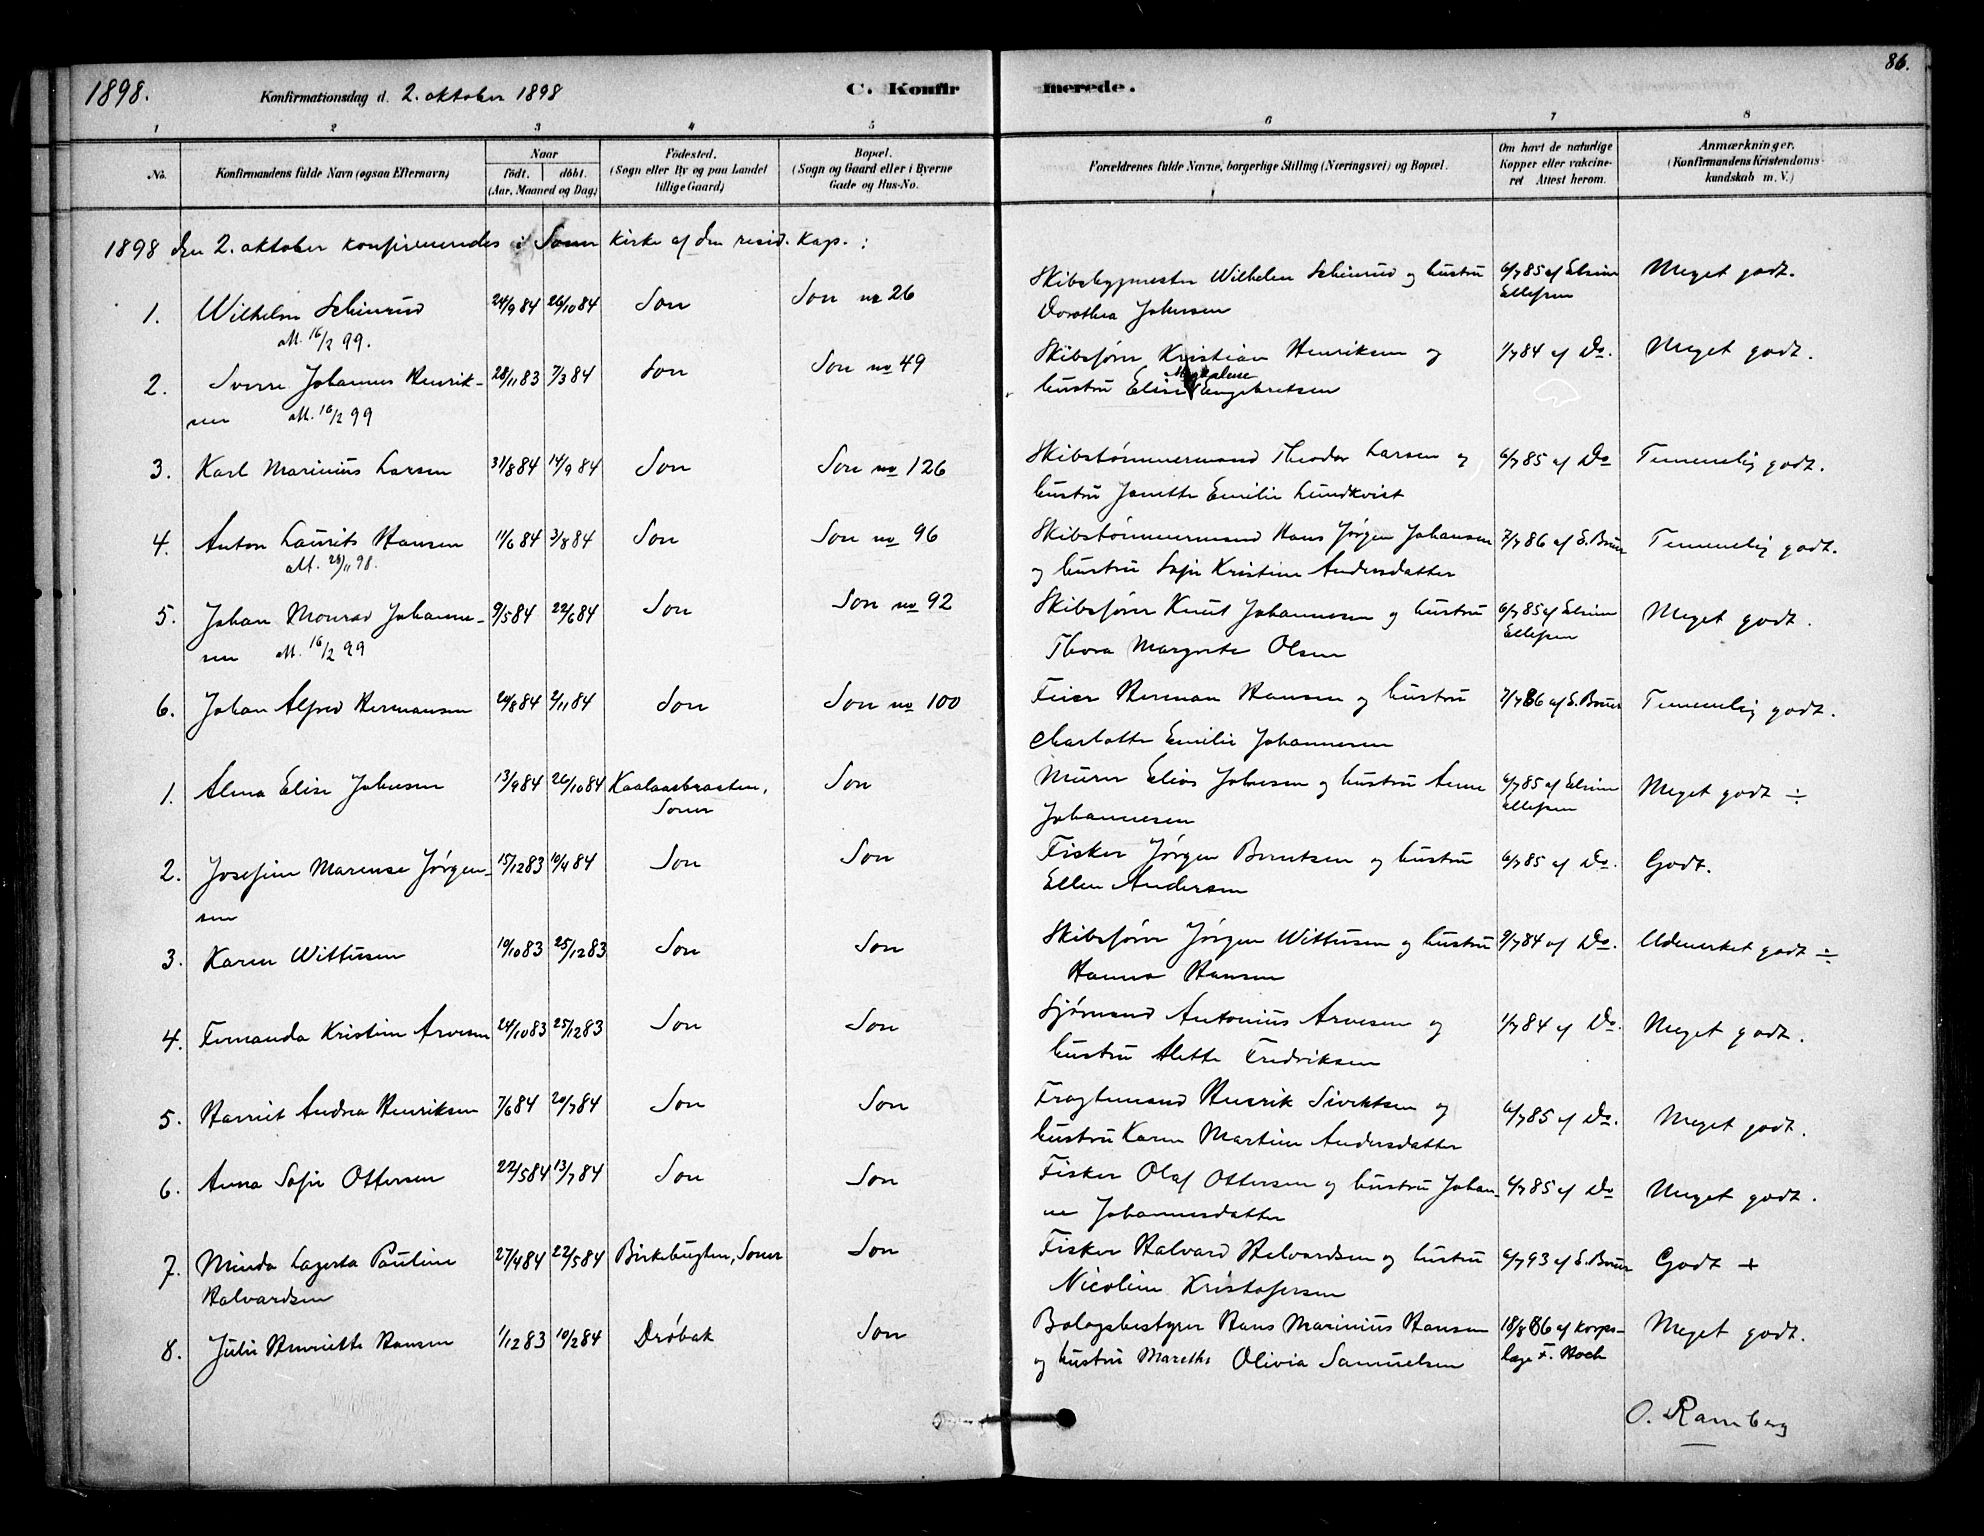 86.
1898.
Konfirmationsdag d. 2. oktober 1898
C. Konfirmerede.
1 2 3 4 5 6 7 8
No.
Konfirmandens fulde Navn (ogsaa Efternavn)
Naar
født. døbt.
(Aar, Maaned og Dag)
Fødested.
(Sogn eller By og paa Landet
tillige Gaard)
Bopæl.
(Sogn og Gaard eller i Byerne
Gade og Hus-No.
Forældrenes fulde Navne, borgerlige Stilling (Næringsvei) og Bopæl.
Om havt de naturlige
Kopper eller vakcine-
ret Attest herom.
Anmærkninger.
(Konfirmandens Kristendoms-
kundskab m. V.)
1898 den 2. oktober konfirmeredes i Soner kirke af den resid. kap. :
1. Wilhelm Scheinrud 24/9 84 26/10 84 Son Son no 26 Skibsbygmester Wilhelm Scheinrud og hustru 6/7 85 af Elvine Meget godt.
Att. 16/2 99. Dorothea Johnsen Ellefsen
2. Sverre Johannes Henrik- 28/11 83 7/3 84 Son Son no 49 Skibsfører Kristian Henriksen og 1/7 84 af Do. Meget godt.
sen Att. 16/2 99 hustru Elise Magdalene Engebretsen
3. Karl Marinius Larsen 31/8 84 14/9 84 Son Son no 126 Skibstømmermand Theodor Larsen og 6/7 85 af Do Temmelig godt.
hustru Janette Emilie Lundkvist
4. Anton Laurits Hansen 11/6 84 3/8 84 Son Son no 96 Skibstømmermand Hans Jørgen Johansen 7/7 86 af S. Bruer Temmelig godt.
Att. 28/11 98. og hustru Sofie Kristine Andersdatter
5. Johan Monrad Johanne- 9/5 84 22/6 84 Son Son no 92 Skibsfører Knut Johannesen og hustru 6/7 85 af Elvine Meget godt.
sen Att. 16/2 99 Thora Margrete Olsen Ellefsen
6. Johan Alfred Hermansen 20/8 84 2/11 84 Son Son no 100 Feier Herman Hansen og hustru 7/7 86 af S. Bruer Temmelig godt.
Charlotte Emilie Johannesen
1. Alma Elise Johnsen 13/9 84 26/10 84 Kaalaasbraaten, Son Murer Elias Johnsen og hustru Anne 6/7 85 af Elvine Meget godt ÷
Soner Johannesen Ellefsen
2. Josefine Marense Jørgen- 15/12 83 10/4 84 Son Son Fisker Jørgen Berntsen og hustru 6/7 85 af Do. Godt.
sen Ellen Andersen
3. Karen Wittusen 19/10 83 25/12 83 Son Son Skibsfører Jørgen Wittusen og hustru 9/7 84 af Do. Udmerket godt ÷
Hanna Hansen
4. Fernanda Kristine Arvesen 24/10 83 25/12 83 Son Son Sjømand Antonius Arvesen og 1/7 84 af Do. Meget godt.
hustru Alette Fredriksen
5. Harriet Andrea Henriksen 7/6 84 20/7 84 Son Son Fragtemand Henrik Sivertsen og 6/7 85 af Do. Meget godt.
hustru Karen Martine Andersdatter
6. Anna Sofie Ottersen 22/5 84 13/7 84 Son Son Fisker Olaf Ottersen og hustru Johan- 6/7 85 af Do Meget godt.
ne Johannesdatter
7. Minda Lagerta Pauline 27/4 84 22/5 84 Birkebugten, Soner Son Fisker Halvard Halvardsen og hustru 6/7 93 af S. Bruer Godt +
Halvardsen Nicoline Kristofersen
8. Julie Henriette Hansen 1/12 83 10/2 84 Drøbak Son Bolagsbestyrer Hans Marinius Hansen 18/8 86 af Korps- Meget godt.
og hustru Marethe Olivia Samuelsen læge F. Hoch
O. Ramberg